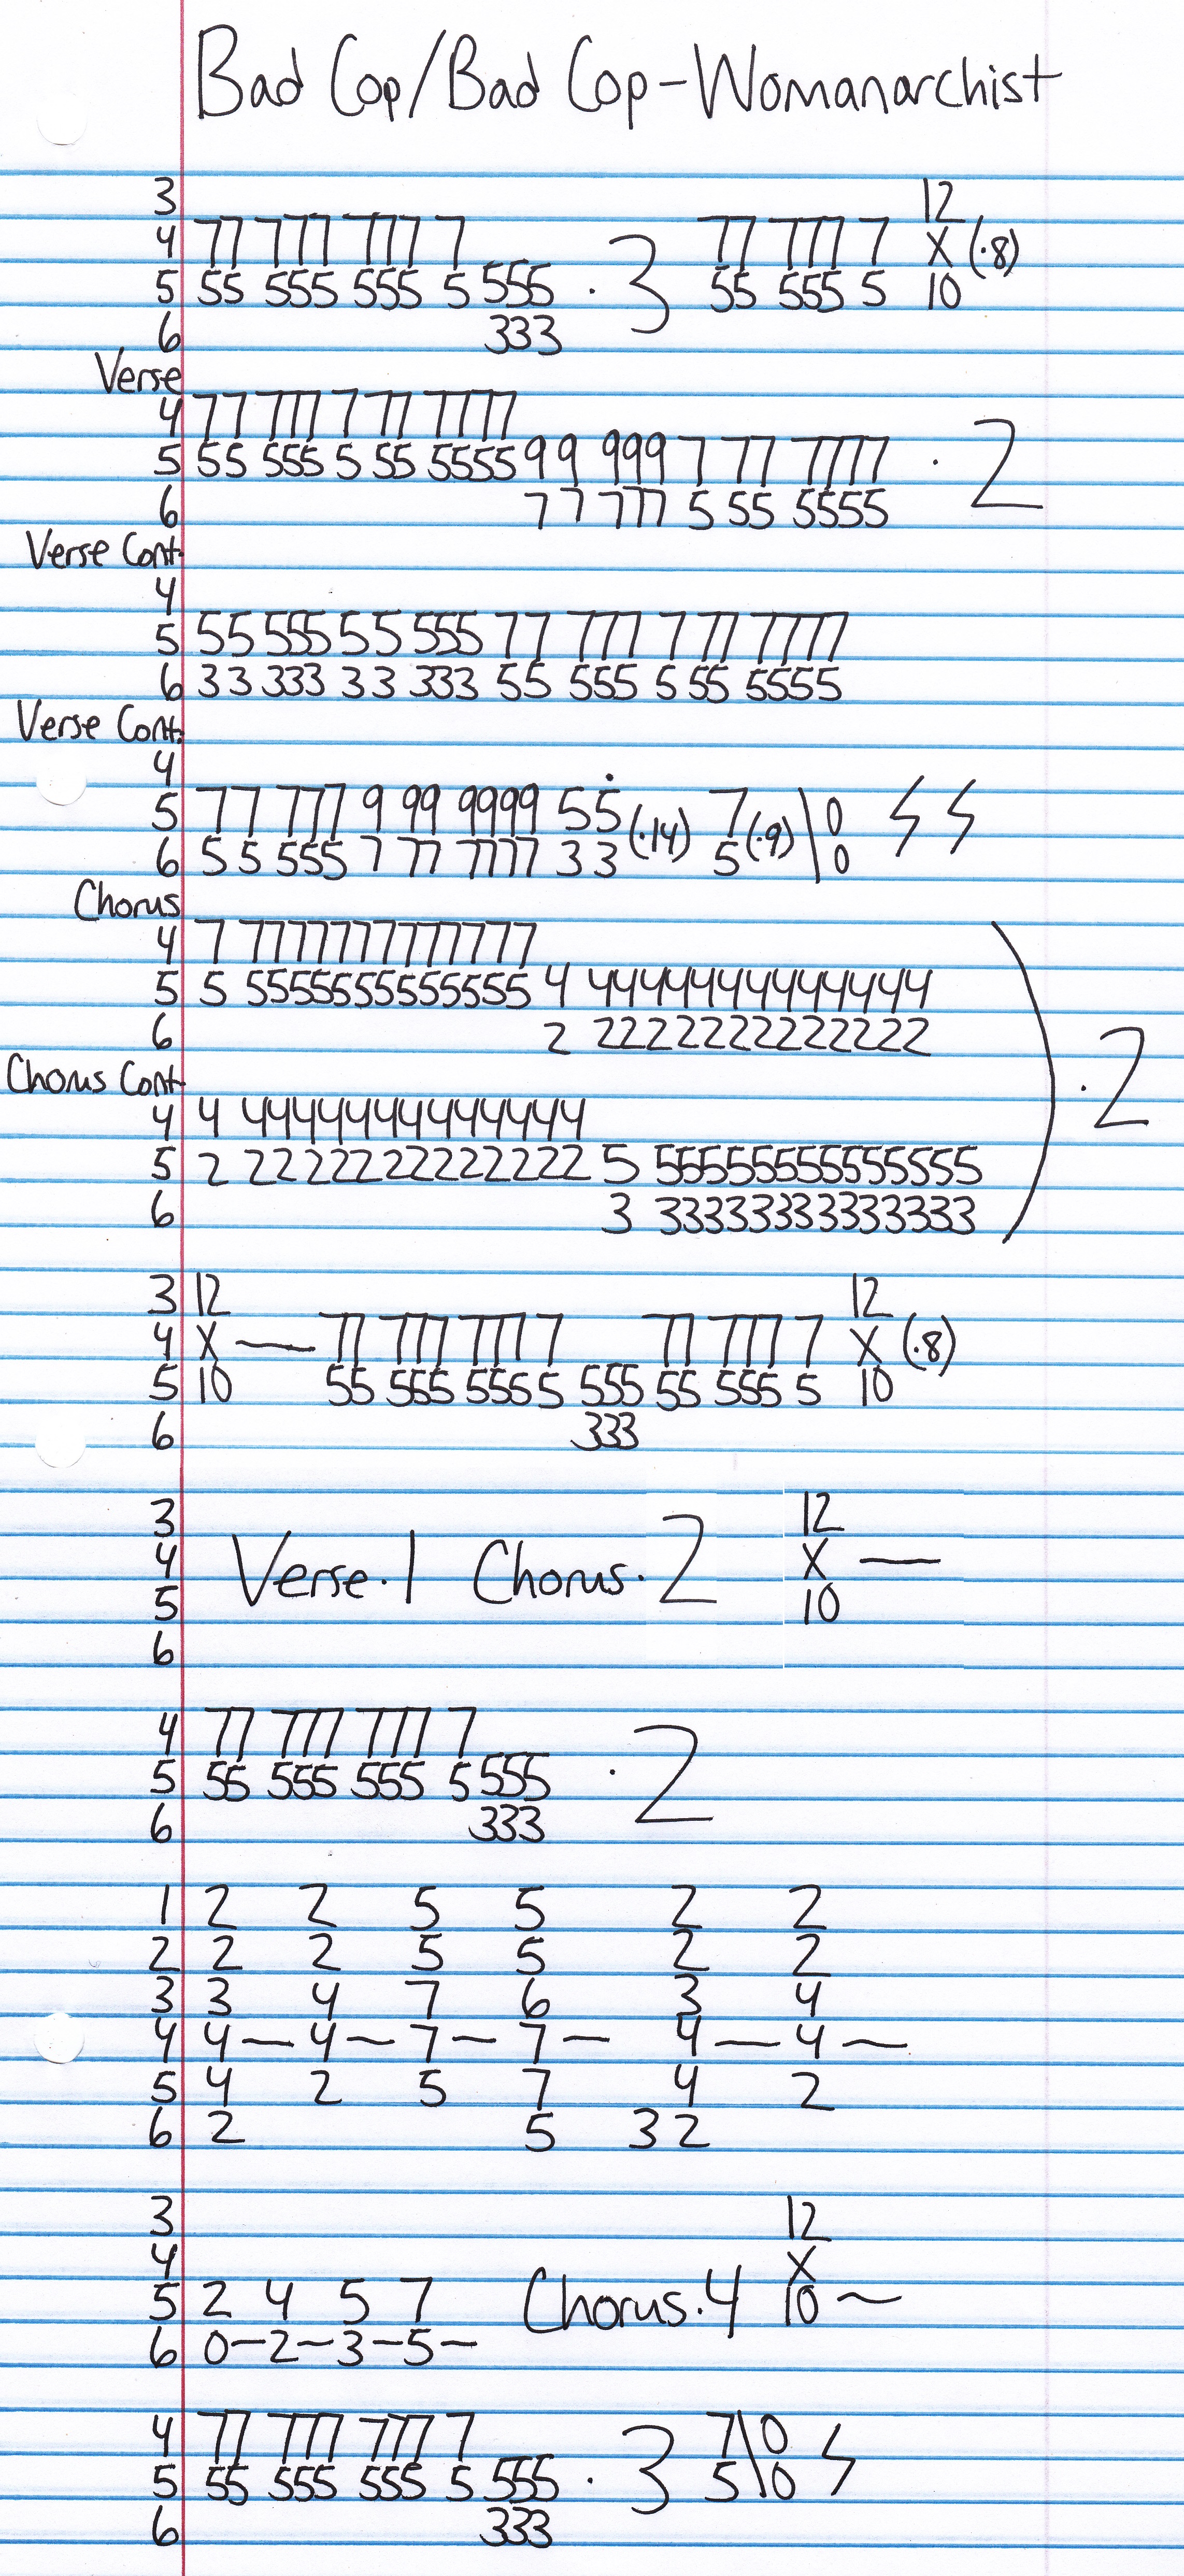 Bad Cop/Bad Cop-Womanarchist
3 12
4 77 777 777 7 77 777 7 X (·8)
5 55 555 555 5 555 · 3 55 555 5 10
6 333
Verse
4 77 777 7 77 7777
5 55 555 5 55 5555 99 999 7 77 7777 · 2
6 77 777 5 55 5555
Verse Cont.
4
5 55 555 55 555 77 777 7 77 7777
6 33 333 33 333 55 555 5 55 5555
Verse Cont.
4
5 77 777 9 99 9999 55 (·14) 7 (·9) \ 0
6 55 555 7 77 7777 33 5 0
Chorus
4 7 7777777777777
5 5 5555555555555 4 44444444444444
6 2 2222222222222
Chorus Cont. · 2
4 4 44444444444444
5 2 22222222222222 5 55555555555555
6 3 33333333333333
3 12 12
4 X — 77 777 777 7 77 777 7 X (·8)
5 10 55 555 555 5 555 55 555 5 10
6 333
3 12
4 Verse·1 Chorus·2 X —
5 10
6
4 77 777 777 7
5 55 555 555 5 555 · 2
6 333
1 2 2 5 5 2 2
2 2 2 5 5 2 2
3 3 4 7 6 3 4
4 4 — 4 — 7 — 7 — 4 — 4 —
5 4 2 5 7 4 2
6 2 5 3 2
3 12
4 X
5 2 4 5 7 Chorus·4 10 —
6 0—2—3—5—
4 77 777 777 7 7\0
5 55 555 555 5 555 · 3 5\0
6 333